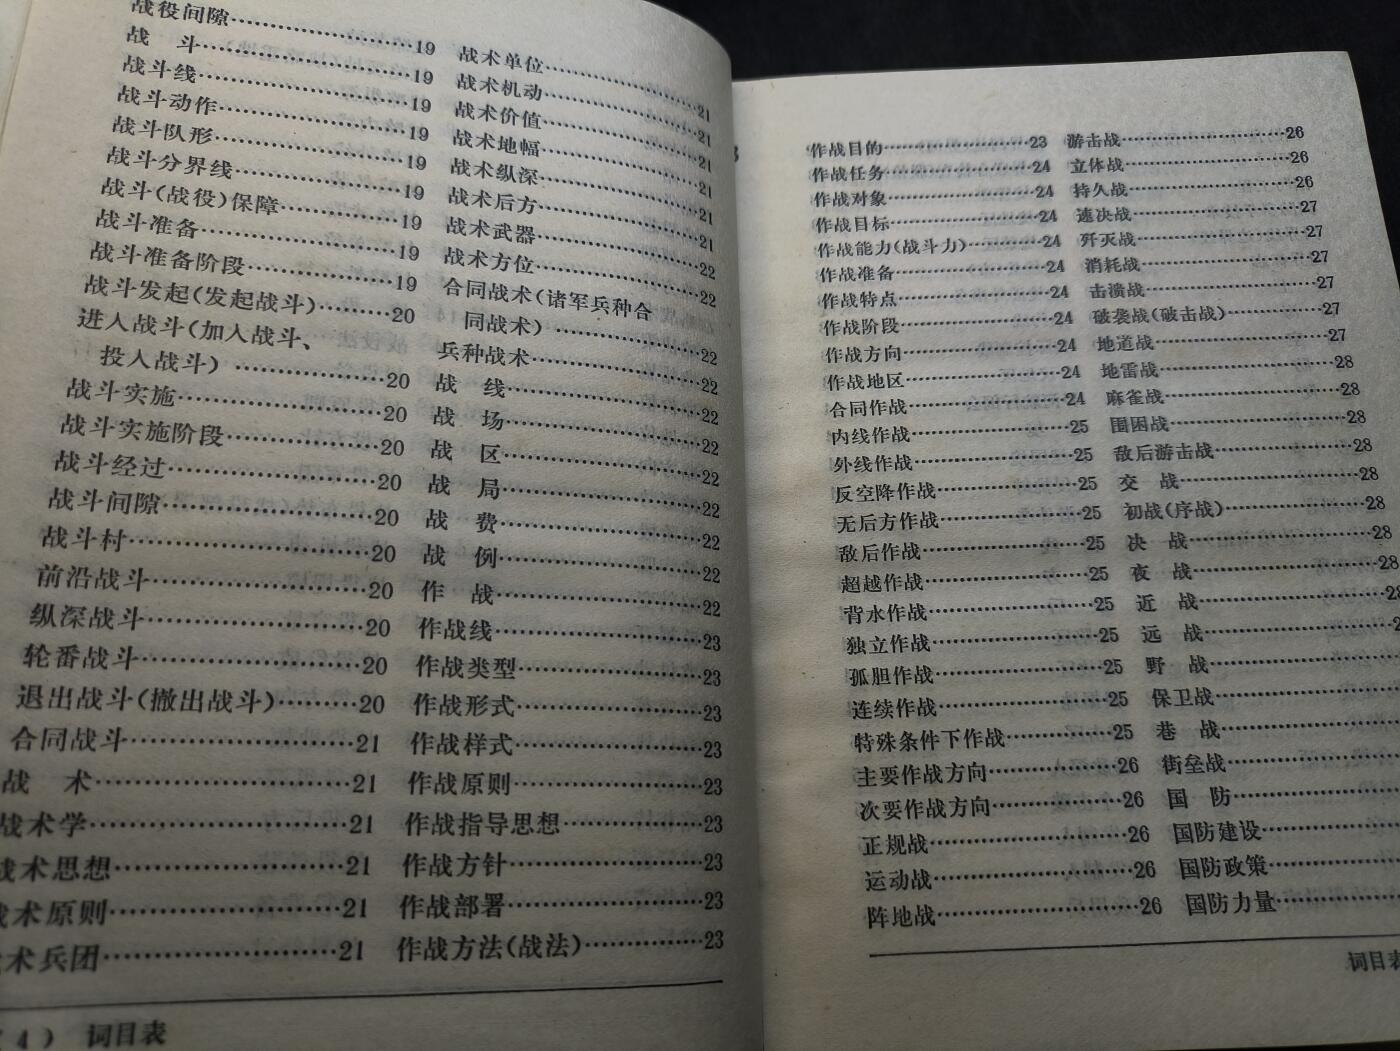 战役间隙……19
战　斗……19
战斗线……19
战斗动作……19
战斗队形……19
战斗分界线……19
战斗(战役)保障……19
战斗准备……19
战斗准备阶段……19
战斗发起(发起战斗)……20
进入战斗(加入战斗、
投入战斗)……20
战斗实施……20
战斗实施阶段……20
战斗经过……20
战斗间隙……20
战斗村……20
前沿战斗……20
纵深战斗……20
轮番战斗……20
退出战斗(撤出战斗)……20
合同战斗……21
战　术……21
战术学……21
战术思想……21
战术原则……21
战术兵团……21
战术单位……21
战术机动……21
战术价值……21
战术地幅……21
战术纵深……21
战术后方……21
战术武器……22
战术方位……22
合同战术(诸军兵种合
同战术)……22
兵种战术……22
战　线……22
战　场……22
战　区……22
战　局……22
战　费……22
战　例……22
作　战……22
作战线……23
作战类型……23
作战形式……23
作战样式……23
作战原则……23
作战指导思想……23
作战方针……23
作战部署……23
作战方法(战法)……23
(4) 词目表
作战目的……23
作战任务……24
作战对象……24
作战目标……24
作战能力(战斗力)……24
作战准备……24
作战特点……24
作战阶段……24
作战方向……24
作战地区……24
合同作战……24
内线作战……25
外线作战……25
反空降作战……25
无后方作战……25
敌后作战……25
超越作战……25
背水作战……25
独立作战……25
孤胆作战……25
连续作战……25
特殊条件下作战……25
主要作战方向……26
次要作战方向……26
正规战……26
运动战……26
阵地战……26
游击战……26
立体战……26
持久战……26
速决战……27
歼灭战……27
消耗战……27
击溃战……27
破袭战(破击战)……27
地道战……27
地雷战……28
麻雀战……28
围困战……28
敌后游击战……28
交　战……28
初战(序战)……28
决　战……28
夜　战……28
近　战……
远　战……
野　战……
保卫战……
巷　战……
街垒战……
国　防……
国防建设……
国防政策……
国防力量……
词目表